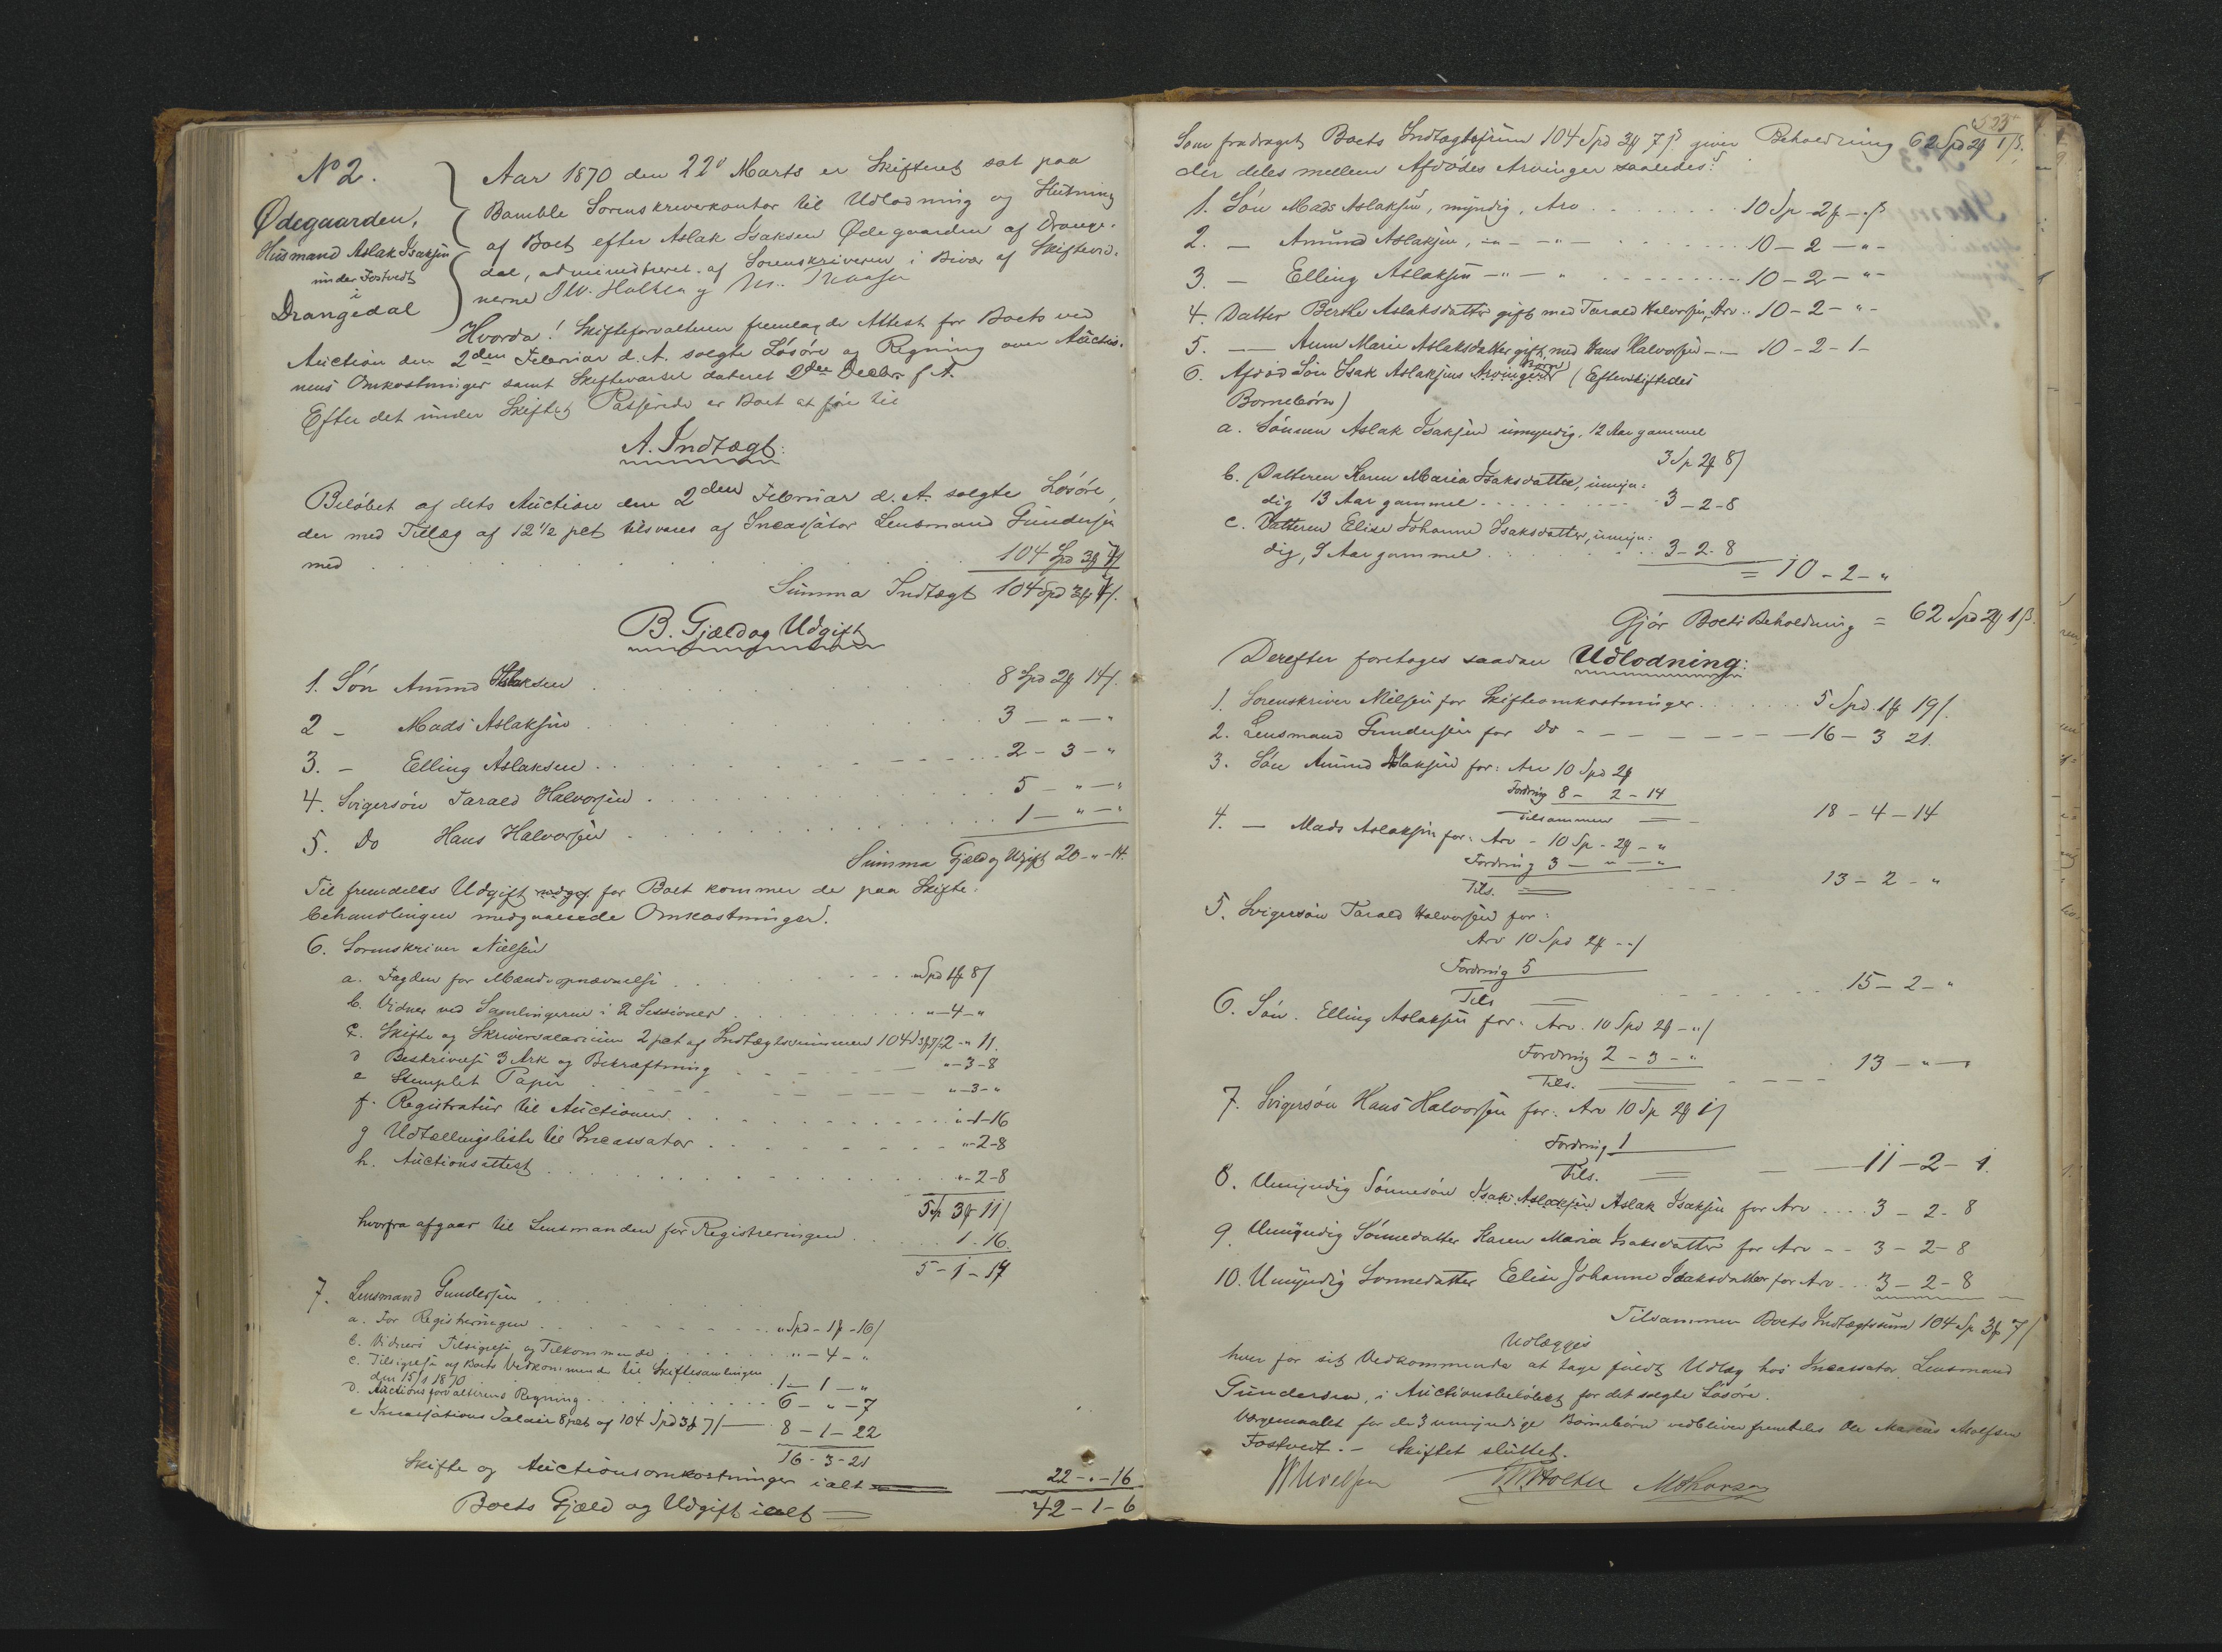 No 2.
Ødegaarden,
Husmand Aslak Isaksen
under Fostvedt
i
Drangedal
Aar 1870 den 22d Marts er Skifteret sat paa
Bamble Sorenskriverkontor til Udlodning og Slutning
af Boet efter Aslak Isaksen Ødegaarden af Drange-
dal, administreret af Sorenskriveren i Bivær af Skiftevid-
nerne
Hvorda! Skifteforvalteren fremlagde Attest for Boets ved
Auction den 2den Februar d. A. solgte Løsøre og Regning over Auctio-
nens Omkostninger samt Skiftevarsel dateret 2den Decbr f A.
Efter det under Skiftet Passerede er Boet at føre til
A. Indtægt:
Beløbet af dets Auction den 2den Februar d. A. solgte Løsøre,
der med Tillæg af 12 1/2 pct tilsvares af Incassator Lensmand Gundersen
med . . . 104 Spd 3 ƒ 7 ß
Summa Indtægt 104 Spd 3 ƒ 7 ß.
B. Gjæld og Udgift
1. Søn Amund Aslaksen . . . 8 Spd 2 ƒ 14 ß.
2 - Mads Aslaksen . . . 3 — " — "
3. - Elling Aslaksen . . . 2 - 3 - "
4. Svigersøn Tarald Halvorsen . . . 5 — " — "
5. Do Hans Halvorsen . . . 1 — " — "
Summa Gjæld og Udgift 20 - " - 14.
Til fremdeles Udgift for Boet kommer de paa Skifte-
behandlingen medgaaede Omkostninger.
6. Sorenskriver Nielsen
a. Fagden for Mændsopnævnelse . . . " Spd 1 ƒ 8 ß
b. Vidner ved Samlingerne i 2 Sessioner . . . " - 4 - "
c. Skifte og Skriversalarium 2 pct af Indtægtssummen 104 Spd 3 ƒ 7 ß 2 - " 11.
d Beskrivelse 3 Ark og Bekræftning . . . " - 3 - 8
e Stemplet Papir . . . " - 3 - "
f. Registratur til Auctionen . . . " - 1 - 16
g Udtællingsliste til Incassator . . . " - 2 - 8
h. Auctionsattest . . . " - 2 - 8
5 Sp 3 ƒ 11 ß
hvorfra afgaar til Lensmanden for Registreringen . . . 1 - 16.
5 - 1 - 19
7. Lensmand Gundersen . . .
a. For Registreringen . . . " Spd - 1 ƒ - 16 ß
b. Vidners Tilsigelse og Tilkommende . . . " - 4 - "
c. Tilsigelse af Boets Vedkommende til Skiftesamlingen
den 15/1 1870 . . . 1 — 1 — "
d. Auctionsforvalterens Regning . . . 6 - " - 7
e Incassations Salair 8 pct af 104 Spd 3 ƒ 7 ß — 8 - 1 - 22
16 - 3 - 21
Skifte og Auctionsomkostninger ialt = 22 - " - 16
Boets Gjæld og Udgift ialt = 42 - 1 - 6
525
Som fradraget Boets Indtægtssum 104 Spd 3 ƒ 7 ß giver Beholdning 62 Spd 2 ƒ 1 ß,
der deles mellem Afdødes Arvinger saaledes:
1. Søn Mads Aslaksen, myndig, Arv . . . 10 Sp - 2 ƒ - " ß
2. — Amund Aslaksen, — " — " — . . . 10 - 2 - " -
3. — Elling Aslaksen — " — " . . . 10 - 2 - " -
4. Datter Berthe Aslaksdatter gift med Tarald Halvorsen, Arv . . 10 - 2 - " -
5. —— Anne Marie Aslaksdatter gift med Hans Halvorsen — — 10 - 2 - 1 -
6. Afdød Søn Isak Aslaksens Arvinger Børn (Efterskiftedes
Børnebørn)
a. Sønnen Aslak Isaksen umyndig, 12 Aar gammel
3 Sp 2 ƒ 8 ß
b. Datteren Karen Maria Isaksdatter, umyn-
dig 13 Aar gammel . . . 3 - 2 - 8
c. Datteren Elise Johanne Isaksdatter, umyn-
dig, 9 Aar gammel . . . 3 - 2 - 8
= 10 - 2 - "
Gjør Boets Beholdning = 62 Spd 2 ƒ 1 ß.
Derefter foretages saadan Udlodning:
1. Sorenskriver Nielsen for Skifteomkostninger . . . 5 Spd. 1 ƒ 19 ß.
2. Lensmand Gundersen for Do - - - 16 - 3 21.
3. Søn Amund Aslaksen for: Arv 10 Spd 2 ƒ
Fordring 8 - 2 - 14
Tilsammen = 18 - 4 - 14
4. — Mads Aslaksen for: Arv - 10 Sp - 2 ƒ - "
Fordring 3 — " — "
Tils. = 13 - 2 - "
5. Svigersøn Tarald Halvorsen for:
Arv 10 Spd 2 ƒ - " ß
Fordring 5
Tils = 15 - 2 - "
6. Søn. Elling Aslaksen for: Arv. 10 Spd 2 ƒ - " ß
Fordring 2 - 3 - "
Tils. = 13 - " - "
7. Svigersøn Hans Halvorsen for: Arv 10 Sp 2 ƒ 1 ß
Fordring 1
Tils. = 11 - 2 - 1.
8. Umyndig Sønnesøn Isak Aslaksen Aslak Isaksen for Arv . . . 3 - 2 - 8
9. Umyndig Sønnedatter Karen Maria Isaksdatter for Arv - - 3 - 2 - 8
10. Umyndig Sønnedatter Elise Johanne Isaksdatter for Arv . . 3 - 2 - 8
Tilsammen Boets Indtægtssum 104 Sp 3 ƒ 7 ß
Udlægges
hver for sit Vedkommende at tage fuldt Udlæg hos Incassator, Lensmand
Gundersen, i Auctionsbeløbet for det solgte Løsøre.
Værgemaalet for de 3 umyndige Børnebørn vedbliver fremdeles Ole Marcus
Fostvedt. - Skiftet sluttet.